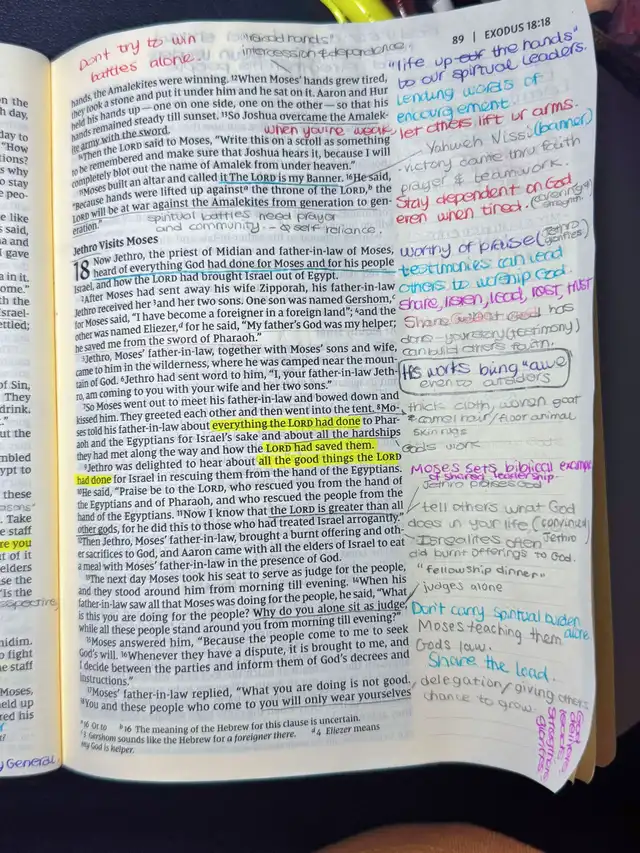 89 | EXODUS 18:18
Don't try to win
battles alone.
intercession & dependance
hands, the Amalekites were winning. 12When Moses' hands grew tired,
they took a stone and put it under him and he sat on it. Aaron and Hur
held his hands up—one on one side, one on the other—so that his
hands remained steady till sunset. 13So Joshua overcame the Amalek-
ite army with the sword.
when you're weak
14Then the LORD said to Moses, "Write this on a scroll as something
to be remembered and make sure that Joshua hears it, because I will
completely blot out the name of Amalek from under heaven."
15Moses built an altar and called it The LORD is my Banner. 16He said,
"Because hands were lifted up against a the throne of the LORD, b the
LORD will be at war against the Amalekites from generation to gen-
eration."
spiritual battles need prayer
and community - self reliance.
Jethro Visits Moses
18 Now Jethro, the priest of Midian and father-in-law of Moses,
heard of everything God had done for Moses and for his people
Israel, and how the LORD had brought Israel out of Egypt.
2After Moses had sent away his wife Zipporah, his father-in-law
Jethro received her 3and her two sons. One son was named Gershom, c
for Moses said, "I have become a foreigner in a foreign land"; 4and the
other was named Eliezer, d for he said, "My father's God was my helper;
he saved me from the sword of Pharaoh."
5Jethro, Moses' father-in-law, together with Moses' sons and wife,
came to him in the wilderness, where he was camped near the moun-
tain of God. 6Jethro had sent word to him, "I, your father-in-law Jeth-
ro, am coming to you with your wife and her two sons."
7So Moses went out to meet his father-in-law and bowed down and
kissed him. They greeted each other and then went into the tent. 8Mo-
ses told his father-in-law about everything the LORD had done to Phar-
aoh and the Egyptians for Israel's sake and about all the hardships
they had met along the way and how the LORD had saved them.
9Jethro was delighted to hear about all the good things the LORD
had done for Israel in rescuing them from the hand of the Egyptians.
10He said, "Praise be to the LORD, who rescued you from the hand of
the Egyptians and of Pharaoh, and who rescued the people from the
hand of the Egyptians. 11Now I know that the LORD is greater than all
other gods, for he did this to those who had treated Israel arrogantly."
12Then Jethro, Moses' father-in-law, brought a burnt offering and oth-
er sacrifices to God, and Aaron came with all the elders of Israel to eat
a meal with Moses' father-in-law in the presence of God.
13The next day Moses took his seat to serve as judge for the people,
and they stood around him from morning till evening. 14When his
father-in-law saw all that Moses was doing for the people, he said, "What
is this you are doing for the people? Why do you alone sit as judge,
while all these people stand around you from morning till evening?"
15Moses answered him, "Because the people come to me to seek
God's will. 16Whenever they have a dispute, it is brought to me, and
I decide between the parties and inform them of God's decrees and
instructions."
17Moses' father-in-law replied, "What you are doing is not good.
18You and these people who come to you will only wear yourselves
a 16 Or to b 16 The meaning of the Hebrew for this clause is uncertain.
c 3 Gershom sounds like the Hebrew for a foreigner there. d 4 Eliezer means
my God is helper.
"life up our the hands"
to our spiritual leaders.
Lending words of
encouragement.
let others lift ur arms.
Yahweh Nissi (banner)
victory came thru faith
prayer & teamwork.
Stay dependent on God
even when tired.
worthy of praise (Jethro
testimonies can lead
others to worship God.
share, listen, lead, rest, trust
Share what God has
done - your story (testimony)
can build others faith.
His works bring "awe"
even to outsiders
thick cloth, woven goat
camel hair / floor animal
skin rugs
Gods work
Moses sets biblical example
of shared leadership.
Jethro praises God
tell others what God
does in your life (convinced
Jethro
Israelites often
did burnt offerings to God.
"fellowship dinner"
judges alone
Don't carry spiritual burden
alone
Moses teaching them
Gods law.
Share the load.
delegation/giving others
chance to grow.